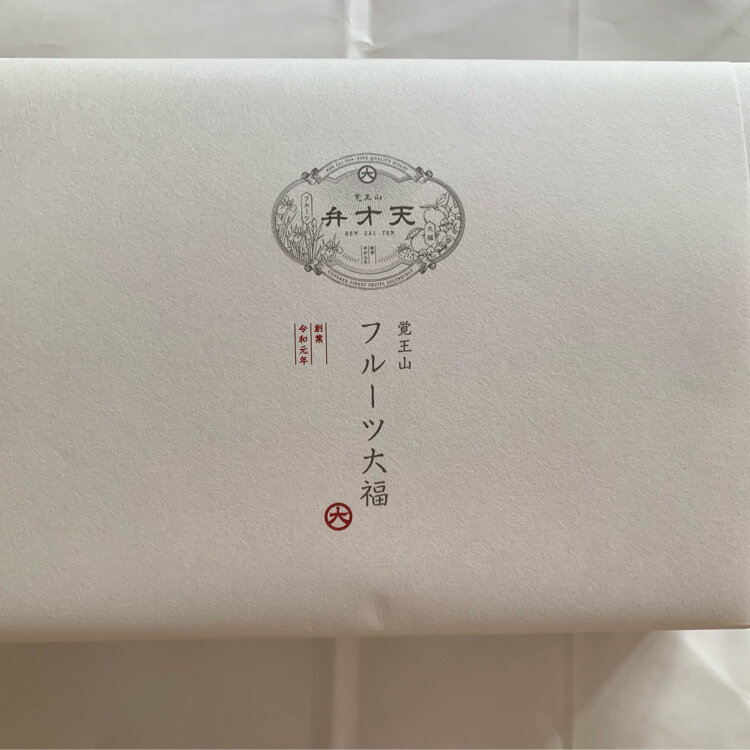 BEN ZAI TEN FINE QUALITY MOCHI
大
覚王山
弁才天
BEN ZAI TEN
フルーツ
大福
創業
令和元年
覚王山
フルーツ大福
創業
令和元年
大